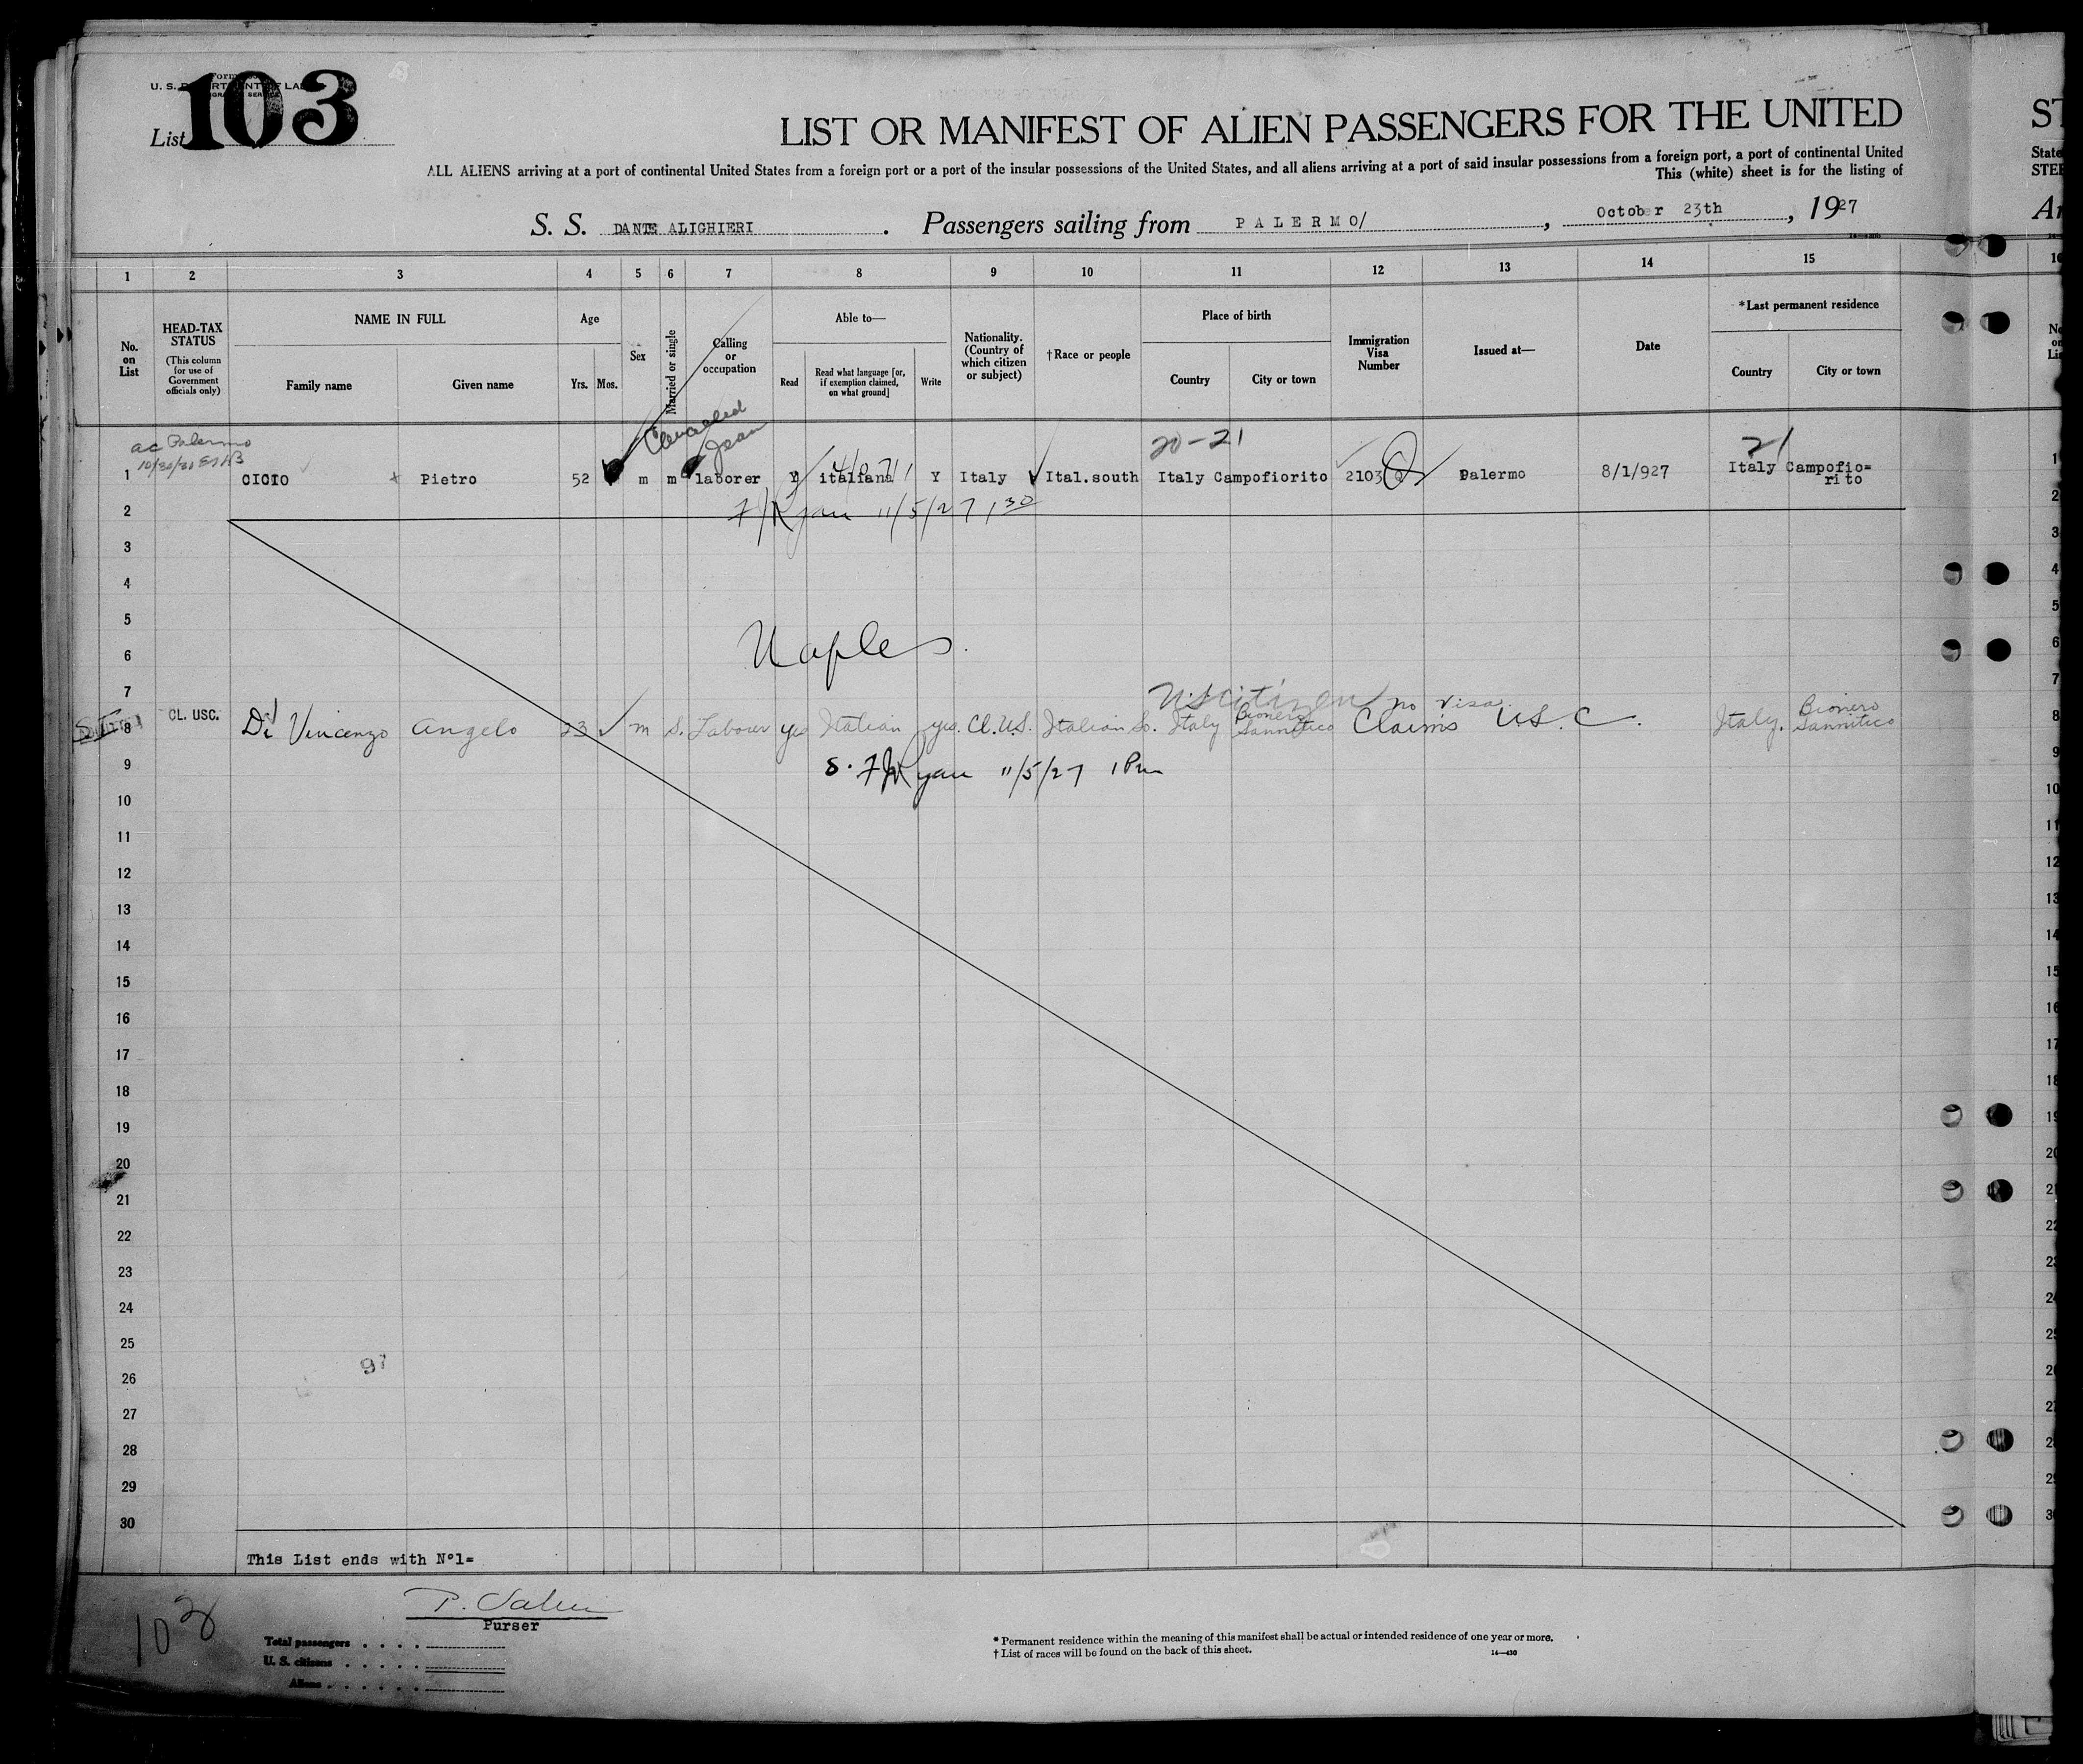 103
U. S. DEPARTMENT OF LA
List
LIST OR MANIFEST OF ALIEN PASSENGERS FOR THE UNITED
ALL ALIENS arriving at a port of continental United States from a foreign port or a port of the insular possessions of the United States, and all aliens arriving at a port of said insular possessions from a foreign port, a port of continental United
This (white) sheet is for the listing of
S. S. DANTE ALIGHIERI . Passengers sailing from PALERMO/ , October 23th , 1927
ST
State
STEE
Ar
1 2 3 4 5 6 7 8 9 10 11 12 13 14 15
No. on List
HEAD-TAX STATUS
(This column for use of Government officials only)
NAME IN FULL
Family name
Given name
Age
Yrs.
Mos.
Sex
Married or single
Calling or occupation
Able to—
Read
Read what language [or, if exemption claimed, on what ground]
Write
Nationality. (Country of which citizen or subject)
†Race or people
Place of birth
Country
City or town
Immigration Visa Number
Issued at—
Date
*Last permanent residence
Country
City or town
ac Palermo
20-21
21
1 CICIO Pietro 52 m m laborer Y italiana Y Italy Ital.south Italy Campofiorito 2103 Palermo 8/1/927 Italy Campofio=
rito
2
F Ryan 11/5/27 1 30
3
4
5
6
Naples.
7
US citizen no visa
8 CL. USC. Di Vincenzo Angelo 23 m S. Labourer yes Italian yes. Cl. U.S. Italian So. Italy Bionero Sannitico Claims U.S.C. Italy. Bionero Sannitico
9
S. F Ryan 11/5/27 1 Pm
10
11
12
13
14
15
16
17
18
19
20
21
22
23
24
25
97
26
27
28
29
30
This List ends with N°1=
103
Purser
Total passengers
U. S. citizens
Aliens
* Permanent residence within the meaning of this manifest shall be actual or intended residence of one year or more.
† List of races will be found on the back of this sheet.
14—430